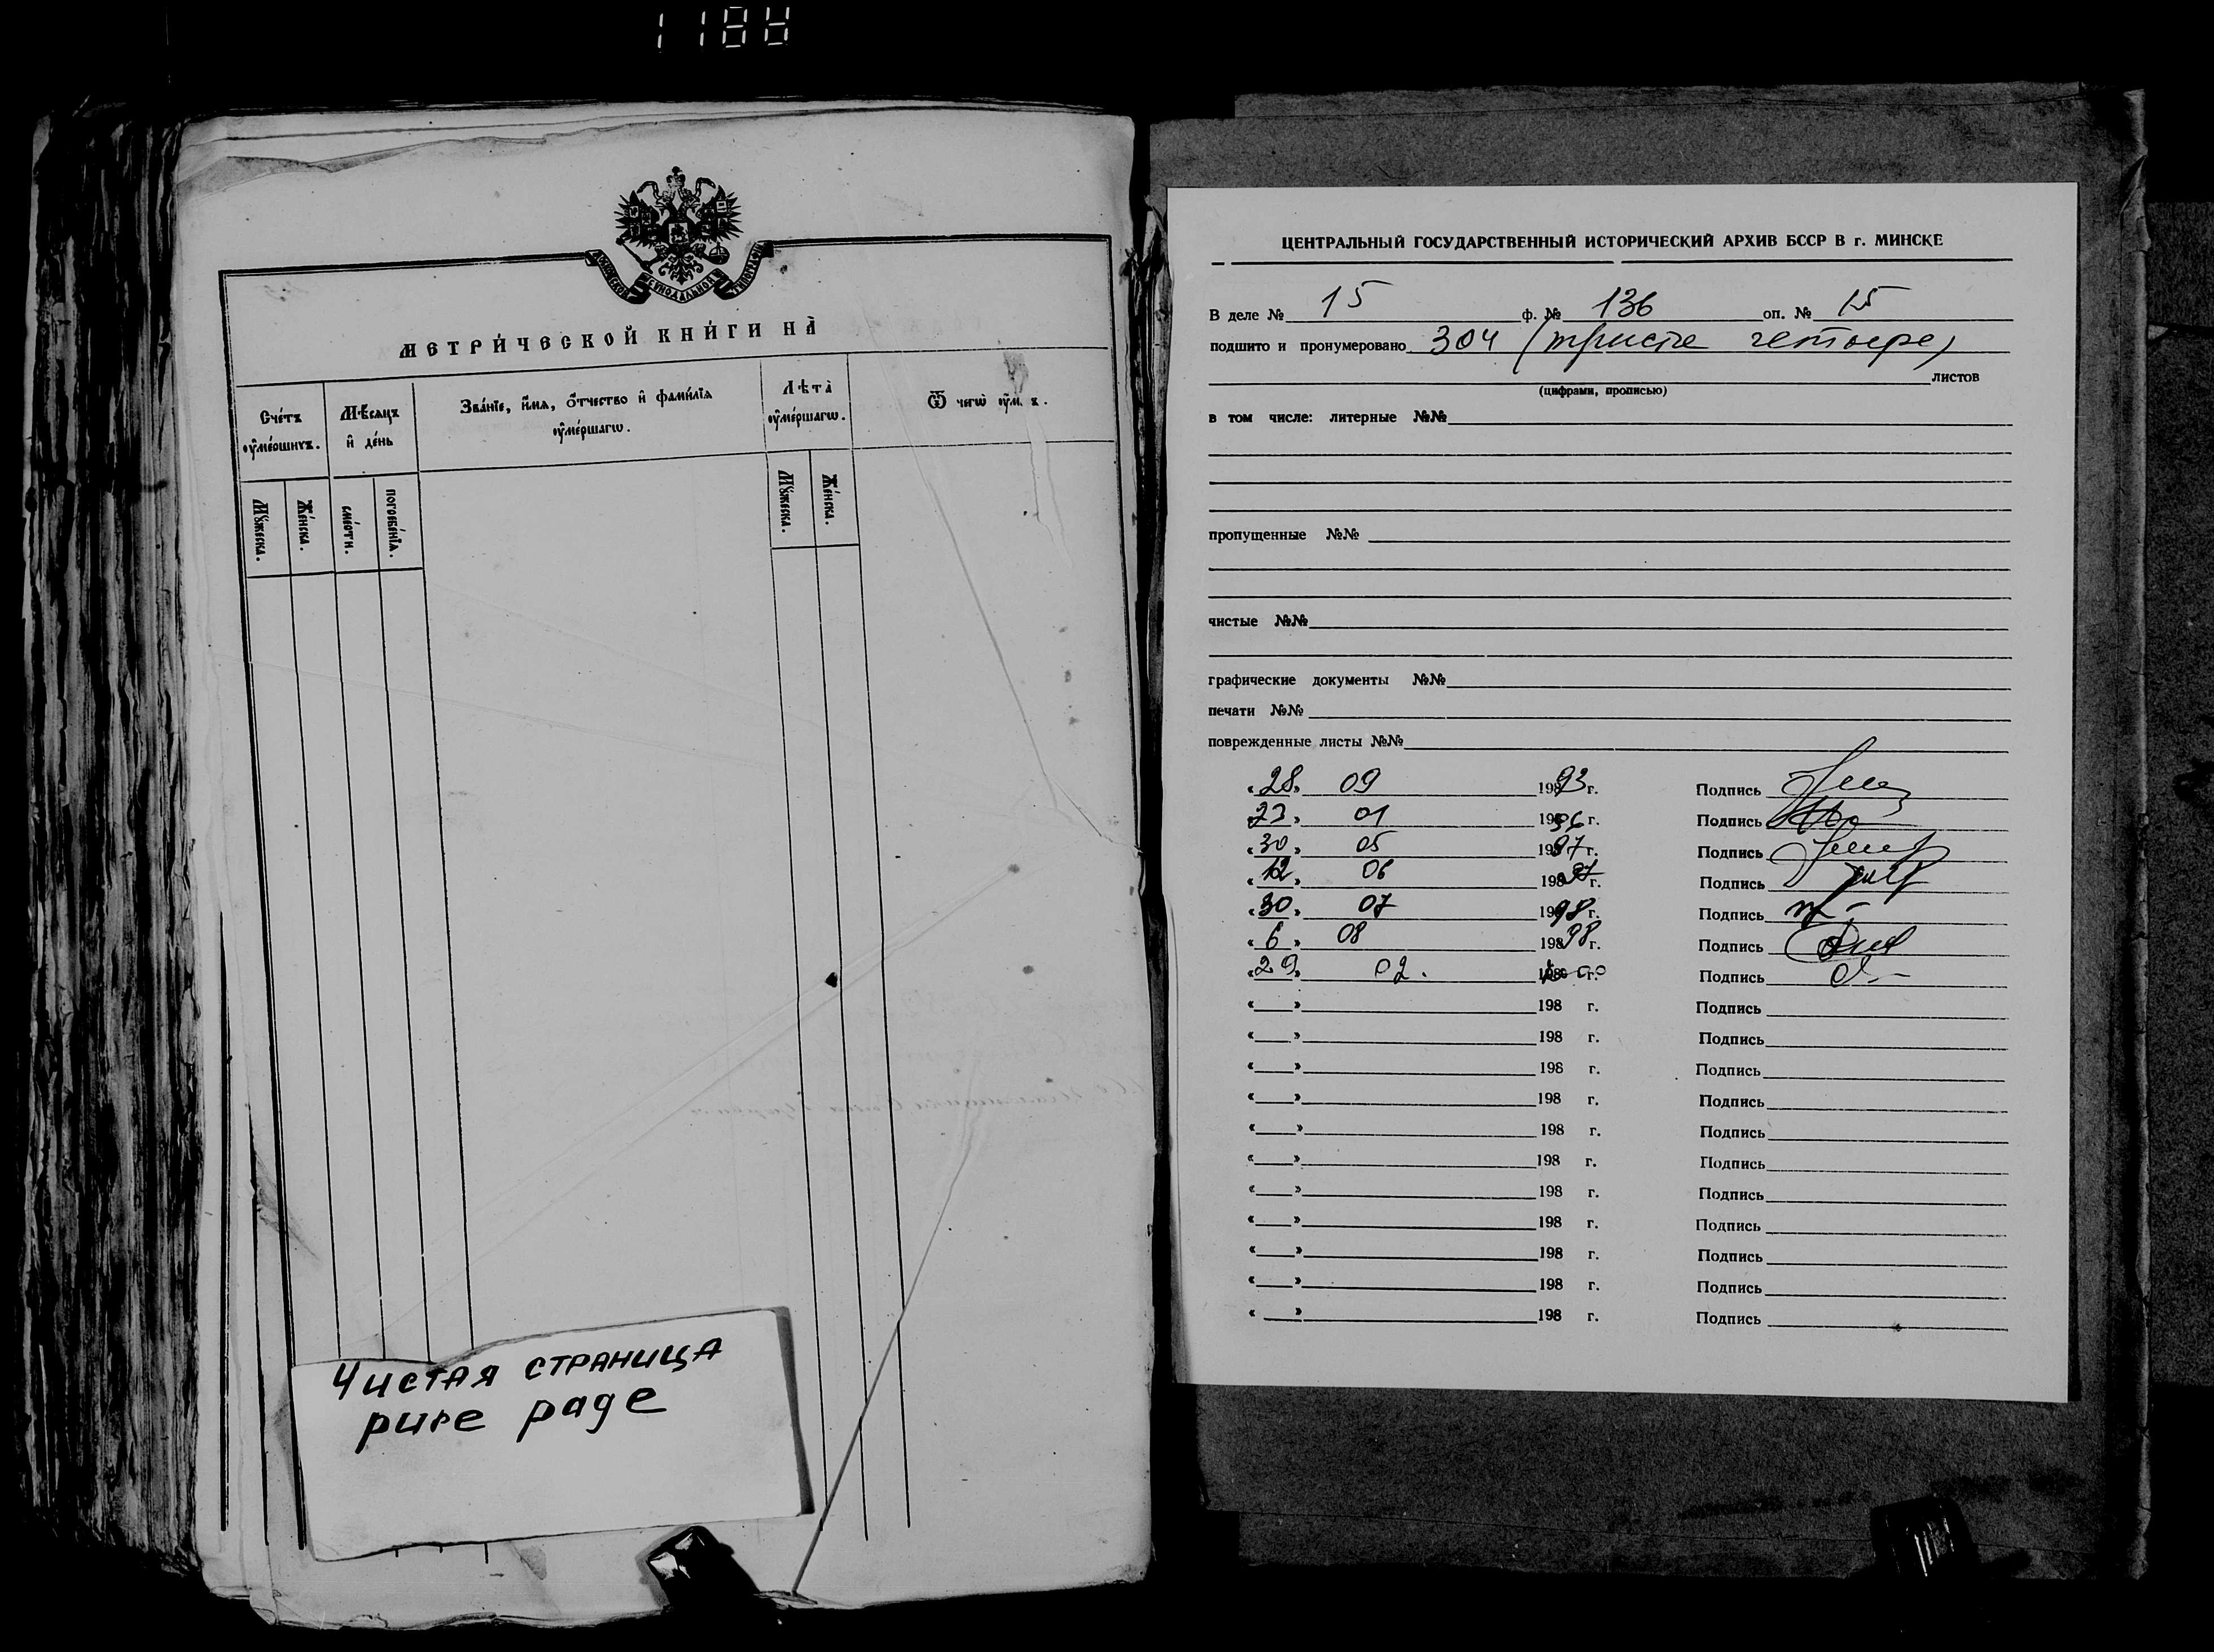 1188
МОСКОВСКОЙ СѴНОДАЛЬНОЙ ТИПОГРАФІИ
МЕТРИ́ЧЕСКОЙ КНИ́ГИ НА̀
Сче́тъ ᲂу҆ме́ршихъ.
Мѣ́сяцъ и҆ де́нь
Зва́нїе, и҆́мѧ, ѻ҆́тчество и҆ фами́лїѧ ᲂу҆ме́ршагѡ.
Лѣ́та ᲂу҆ме́ршагѡ.
Ѿ чегѡ̀
Мꙋ́жеска.
Же́нска.
сме́рти.
погребе́нїѧ.
Мꙋ́жеска.
Же́нска.
Чистая страница
pure page
ЦЕНТРАЛЬНЫЙ ГОСУДАРСТВЕННЫЙ ИСТОРИЧЕСКИЙ АРХИВ БССР В г. МИНСКЕ
В деле № 15 ф. № 136 оп. № 15
подшито и пронумеровано 304 (триста четыре)
листов
(цифрами, прописью)
в том числе: литерные №№
пропущенные №№
чистые №№
графические документы №№
печати №№
поврежденные листы №№
«28» 09 1993 г. Подпись
«23» 01 1996 г. Подпись
«30» 05 1997 г. Подпись
«12» 06 1997 г. Подпись
«30» 07 1998 г. Подпись
«6» 08 1998 г. Подпись
«29» 02. г. Подпись
« » 198 г. Подпись
« » 198 г. Подпись
« » 198 г. Подпись
« » 198 г. Подпись
« » 198 г. Подпись
« » 198 г. Подпись
« » 198 г. Подпись
« » 198 г. Подпись
« » 198 г. Подпись
« » 198 г. Подпись
« » 198 г. Подпись